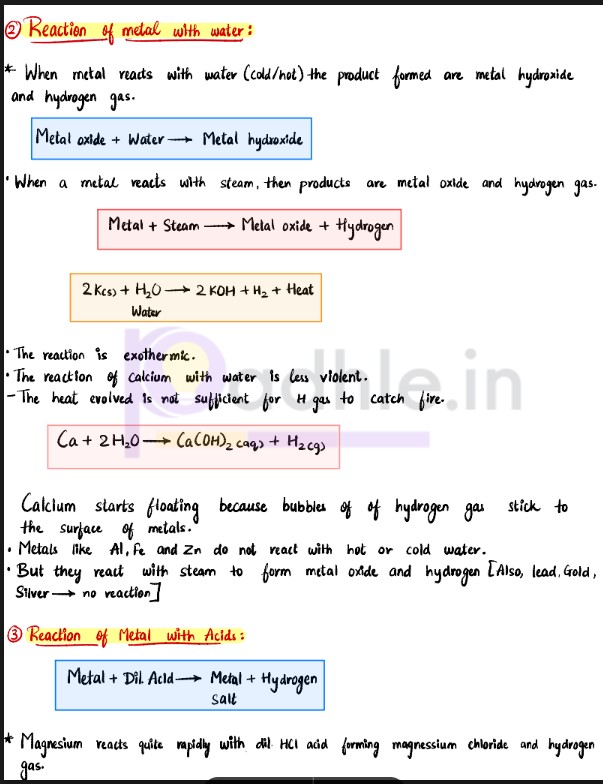 ② Reaction of metal with water:
* When metal reacts with water (cold/hot) the product formed are metal hydroxide
and hydrogen gas.
Metal oxide + Water ⟶ Metal hydroxide
• When a metal reacts with steam, then products are metal oxide and hydrogen gas.
Metal + Steam ⟶ Metal oxide + Hydrogen
2K(s) + H₂O ⟶ 2 KOH + H₂ + Heat
Water
• The reaction is exothermic.
• The reaction of calcium with water is less violent.
- The heat evolved is not sufficient for H gas to catch fire.
padhle.in
Ca + 2H₂O ⟶ Ca(OH)₂ (aq) + H₂(g)
Calcium starts floating because bubbles of of hydrogen gas stick to
the surface of metals.
• Metals like Al, Fe and Zn do not react with hot or cold water.
• But they react with steam to form metal oxide and hydrogen [Also, lead, Gold,
Silver ⟶ no reaction]
③ Reaction of Metal with Acids:
Metal + Dil. Acid ⟶ Metal + Hydrogen
Salt
* Magnesium reacts quite rapidly with dil. HCl acid forming magnessium chloride and hydrogen
gas.